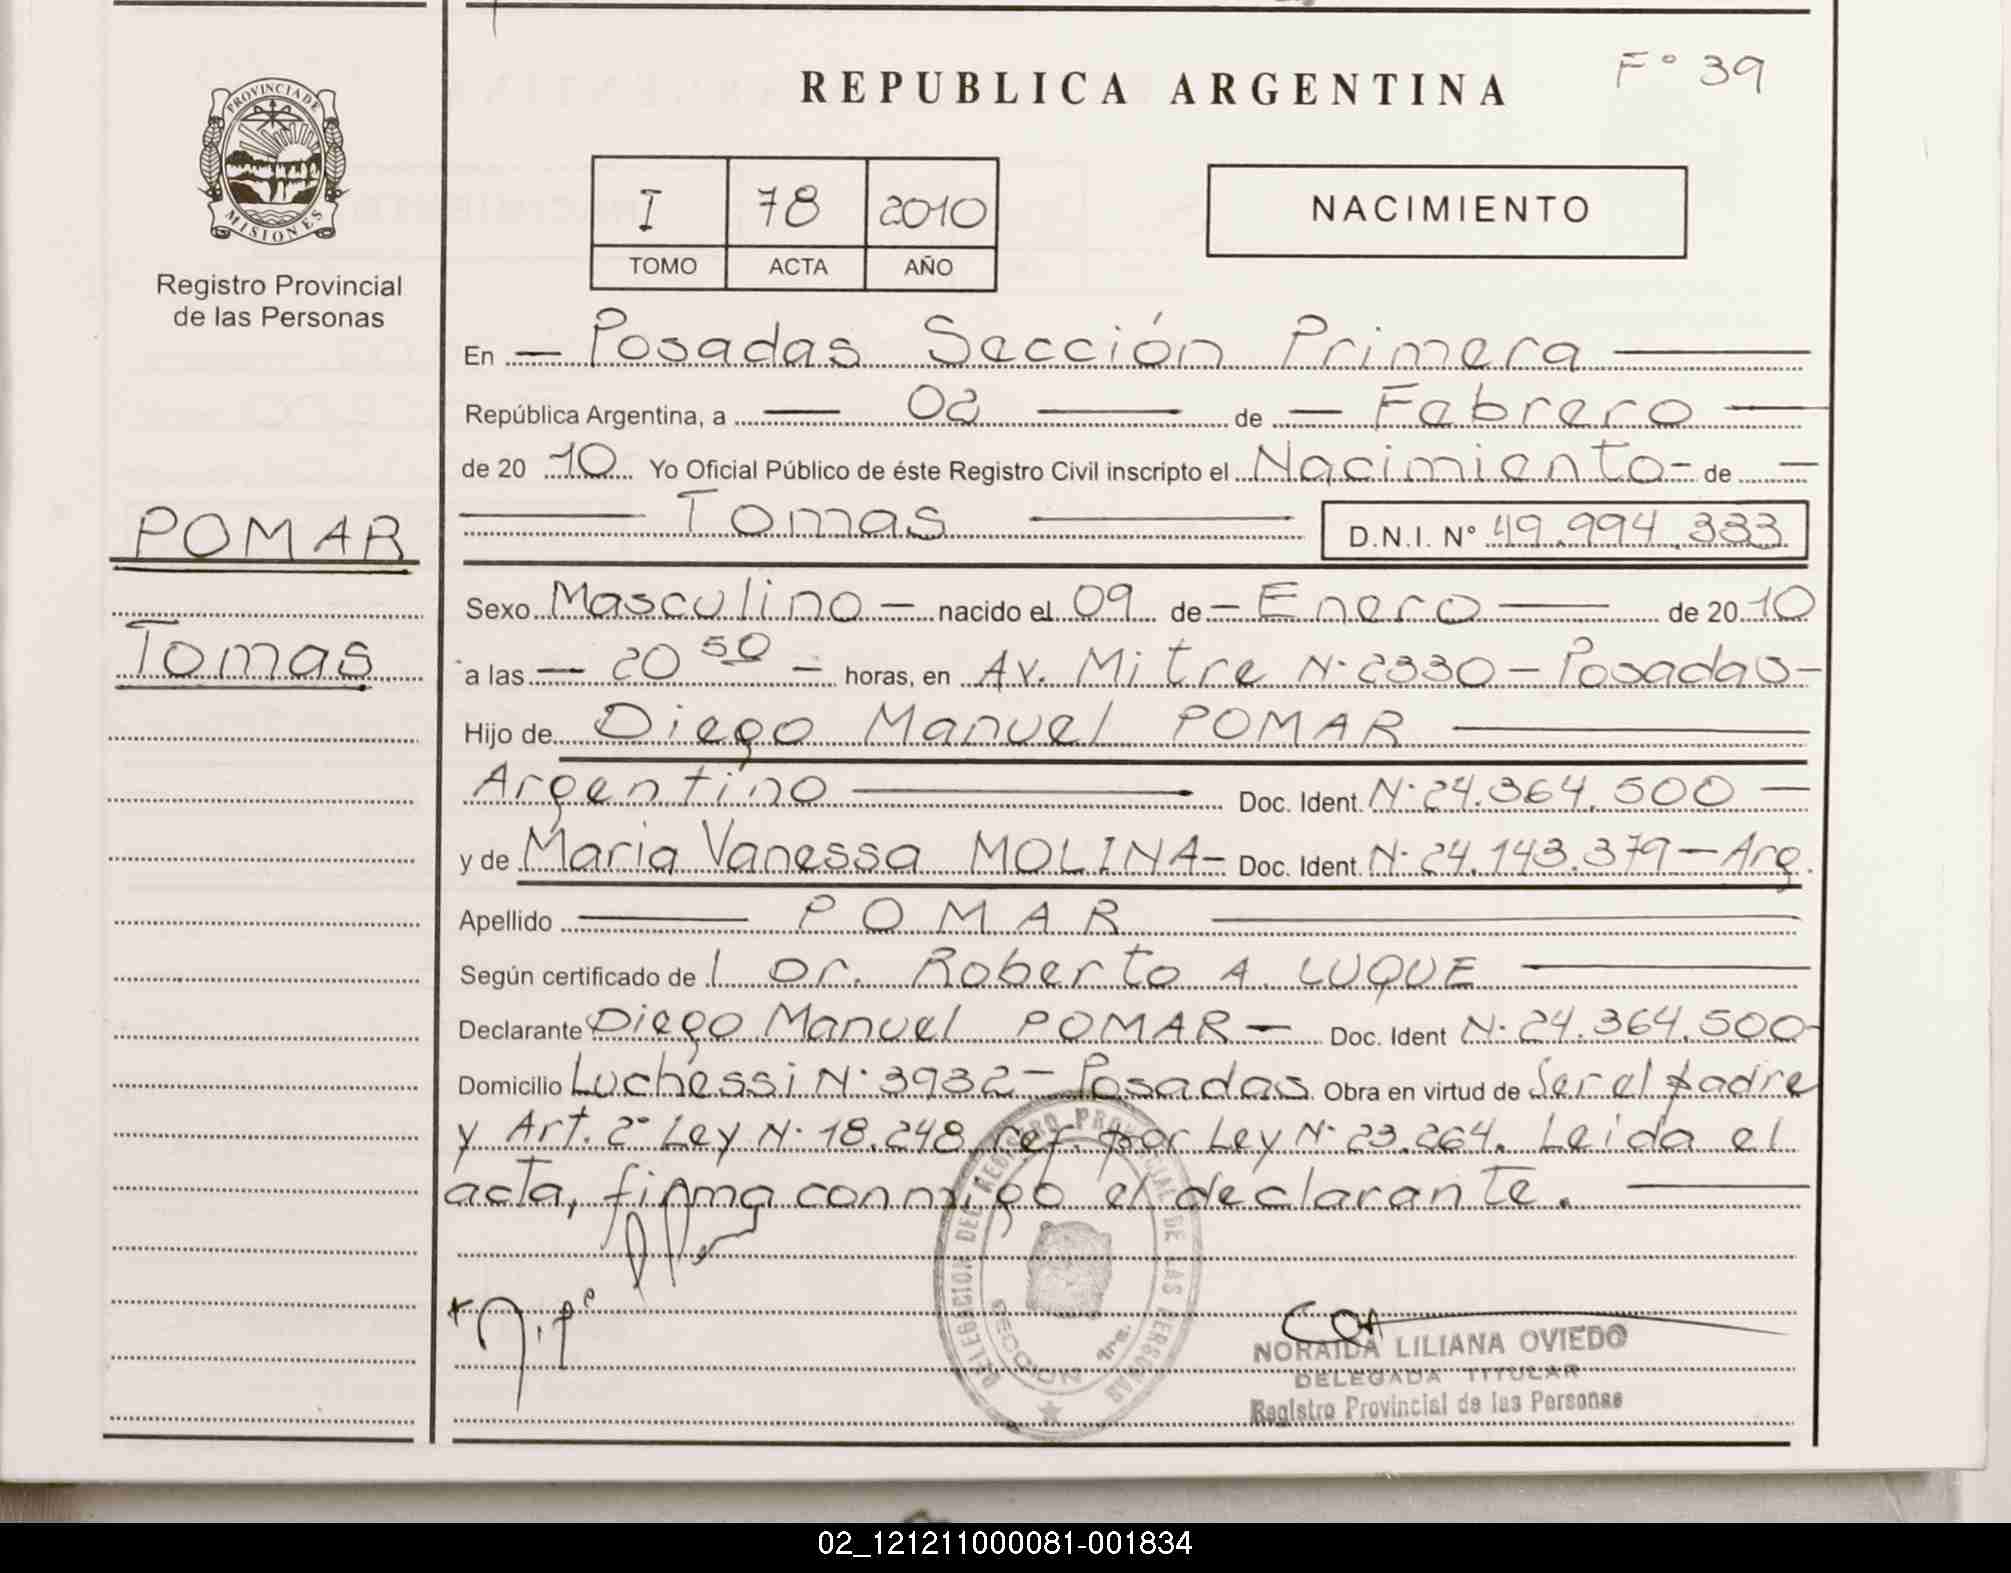 F° 39
REPUBLICA ARGENTINA
PROVINCIA DE
MISIONES
Registro Provincial
de las Personas
I 78 2010
TOMO ACTA AÑO
NACIMIENTO
En — Posadas Sección Primera —
República Argentina, a — 02 — de — Febrero —
de 20 10 Yo Oficial Público de éste Registro Civil inscripto el Nacimiento - de —
— Tomas — D.N.I. N° 49.994.333
POMAR
Tomas
Sexo Masculino — nacido el 09 de — Enero — de 20 10
a las — 20 50 — horas, en Av. Mitre N° 2330 — Posadas —
Hijo de Diego Manuel POMAR —
Argentino — Doc. Ident. N° 24.364.500 —
y de Maria Vanessa MOLINA — Doc. Ident. N° 24.143.379 — Arg.
Apellido — POMAR —
Según certificado de l Dr. Roberto A. LUQUE —
Declarante Diego Manuel POMAR — Doc. Ident N° 24.364.500
Domicilio Luchessi N° 3932 — Posadas Obra en virtud de Ser el padre
y Art. 2° Ley N° 18.248 ref. por Ley N° 23.264. Leida el
acta, firma conmigo el declarante. —
DELEGACION DEL REGISTRO PROVINCIAL DE LAS PERSONAS
SECCION 1ra.
NORAIDA LILIANA OVIEDO
DELEGADA TITULAR
Registro Provincial de las Personas
02_121211000081-001834